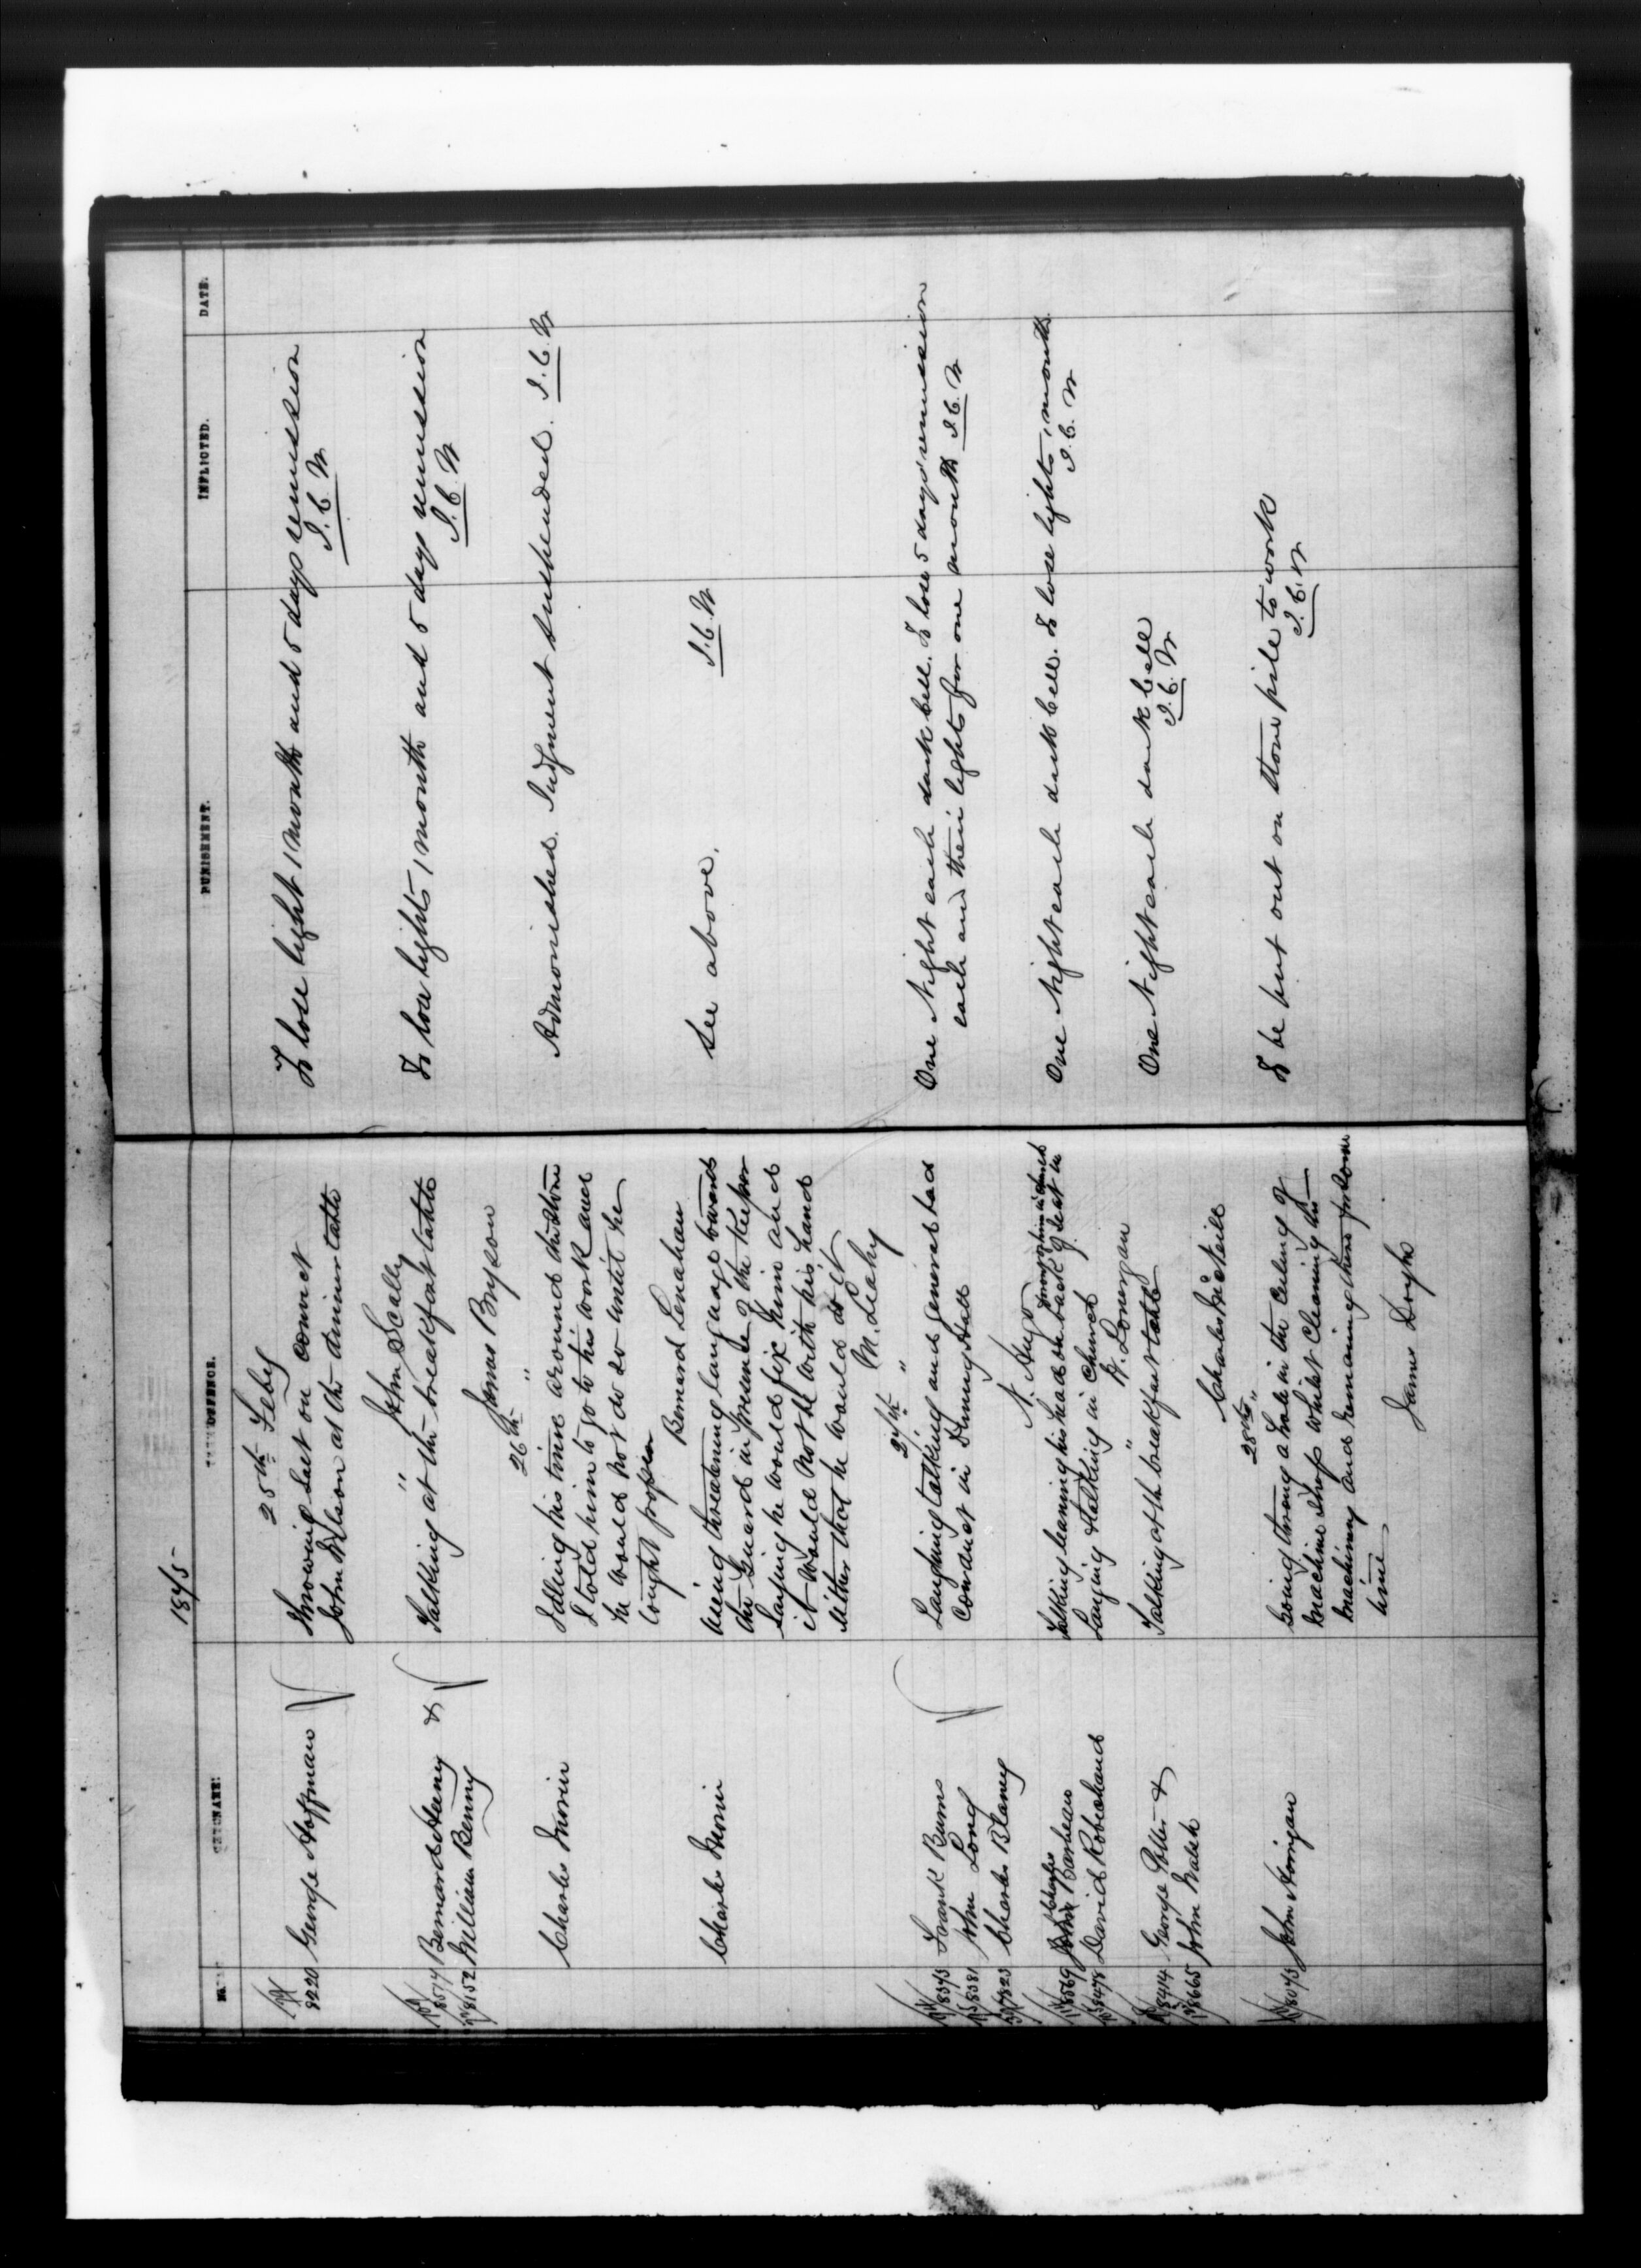 1875
OFFENCE. PUNISHMENT. INFLICTED. DATE.
25th Feby
8220 George Hoffman
Throwing Salt on Convict
John Nelson at the dinner table
John Scally
To lose light 1 month and 5 days remission
J. C. W
"
8574 Bernard Heeny &
8152 William Benny
Talking at the breakfast table
James Bryson
To lose lights 1 month and 5 days remission
J. C. W
26th "
Charles Morin
Idling his time around the Stone
I told him to go to his work and
he would not do so until he
Bernard Lenahan
Admonished. Judgment suspended. J. C. W
Charles Morin
Using threatening language towards
the Guard in presence of the Keeper
Saying he would fix him and
it would not be with his hand
either that he would do it
M. Leahy
See above.
J. C. W
27th "
8373 Frank Burns
8381 John Long
7323 Charles Blaney
Laughing talking and general bad
Conduct in Dining Hall
One Night each dark Cell. To lose 5 days remission
each and their lights for one month J C. W
8569 Charles
8478 David Robichaud
Talking leaning his head on back of seat in
Laughing & talking in Church
Lonergan
One Night each dark Cell. To lose lights, 1 month
J. C. W
"
8414 George Potter &
8665 John Walsh
Talking at the breakfast table
Charles McNeill
One Night each dark Cell
J. C. W
28th "
8073 John Horrigan
Going through a hole in the Ceiling of
Machine Shop whilst Cleaning the
Machinery and remaining there for some
time
James Doyle
To be put out on Stone pile to work
J. C. W